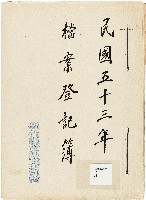 民國五十三年
檔案登記簿